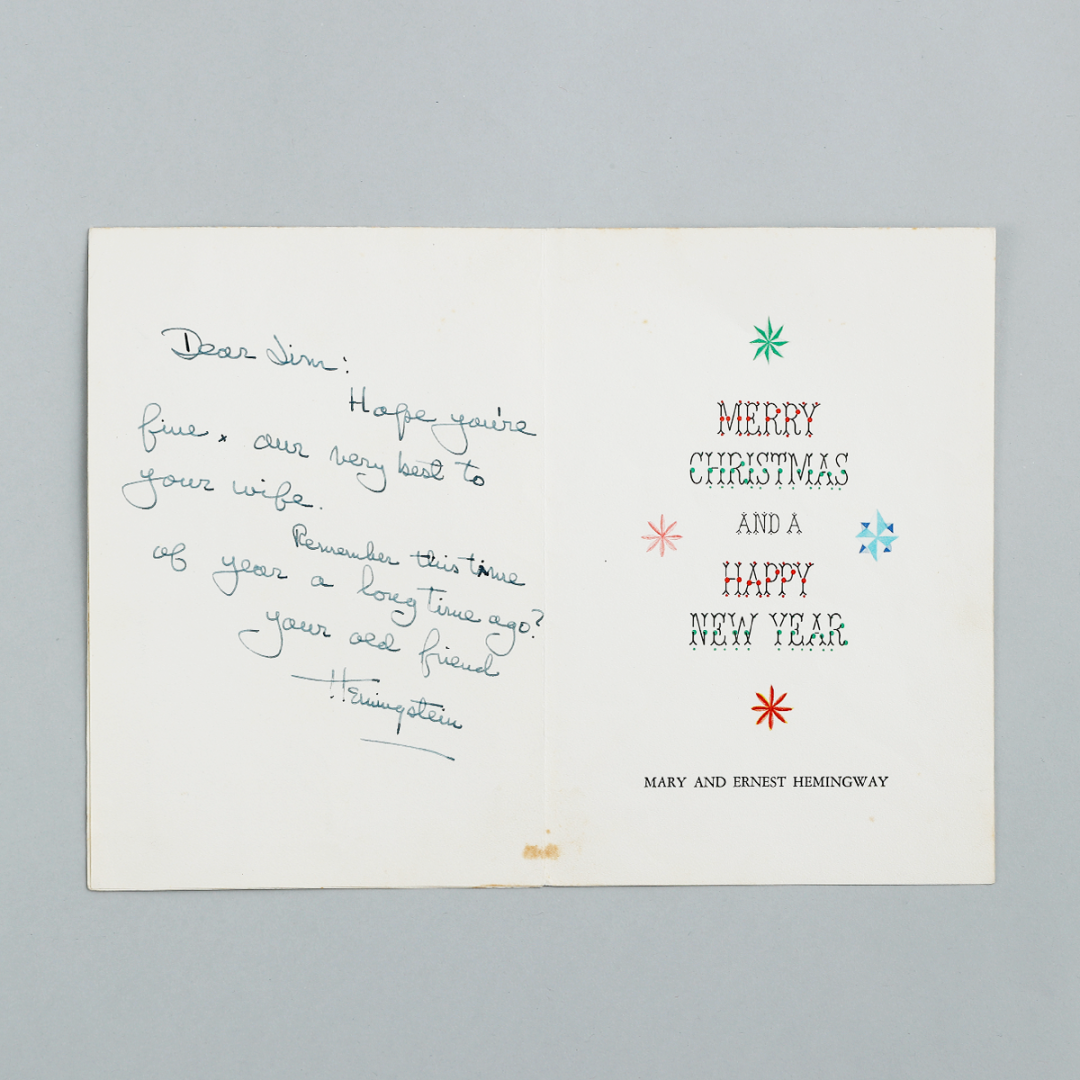 Dear Jim:
Hope you're
fine x our very best to
your wife.
Remember this time
of year a long time ago?
your old friend
Hemingstein
MERRY
CHRISTMAS
AND A
HAPPY
NEW YEAR
MARY AND ERNEST HEMINGWAY